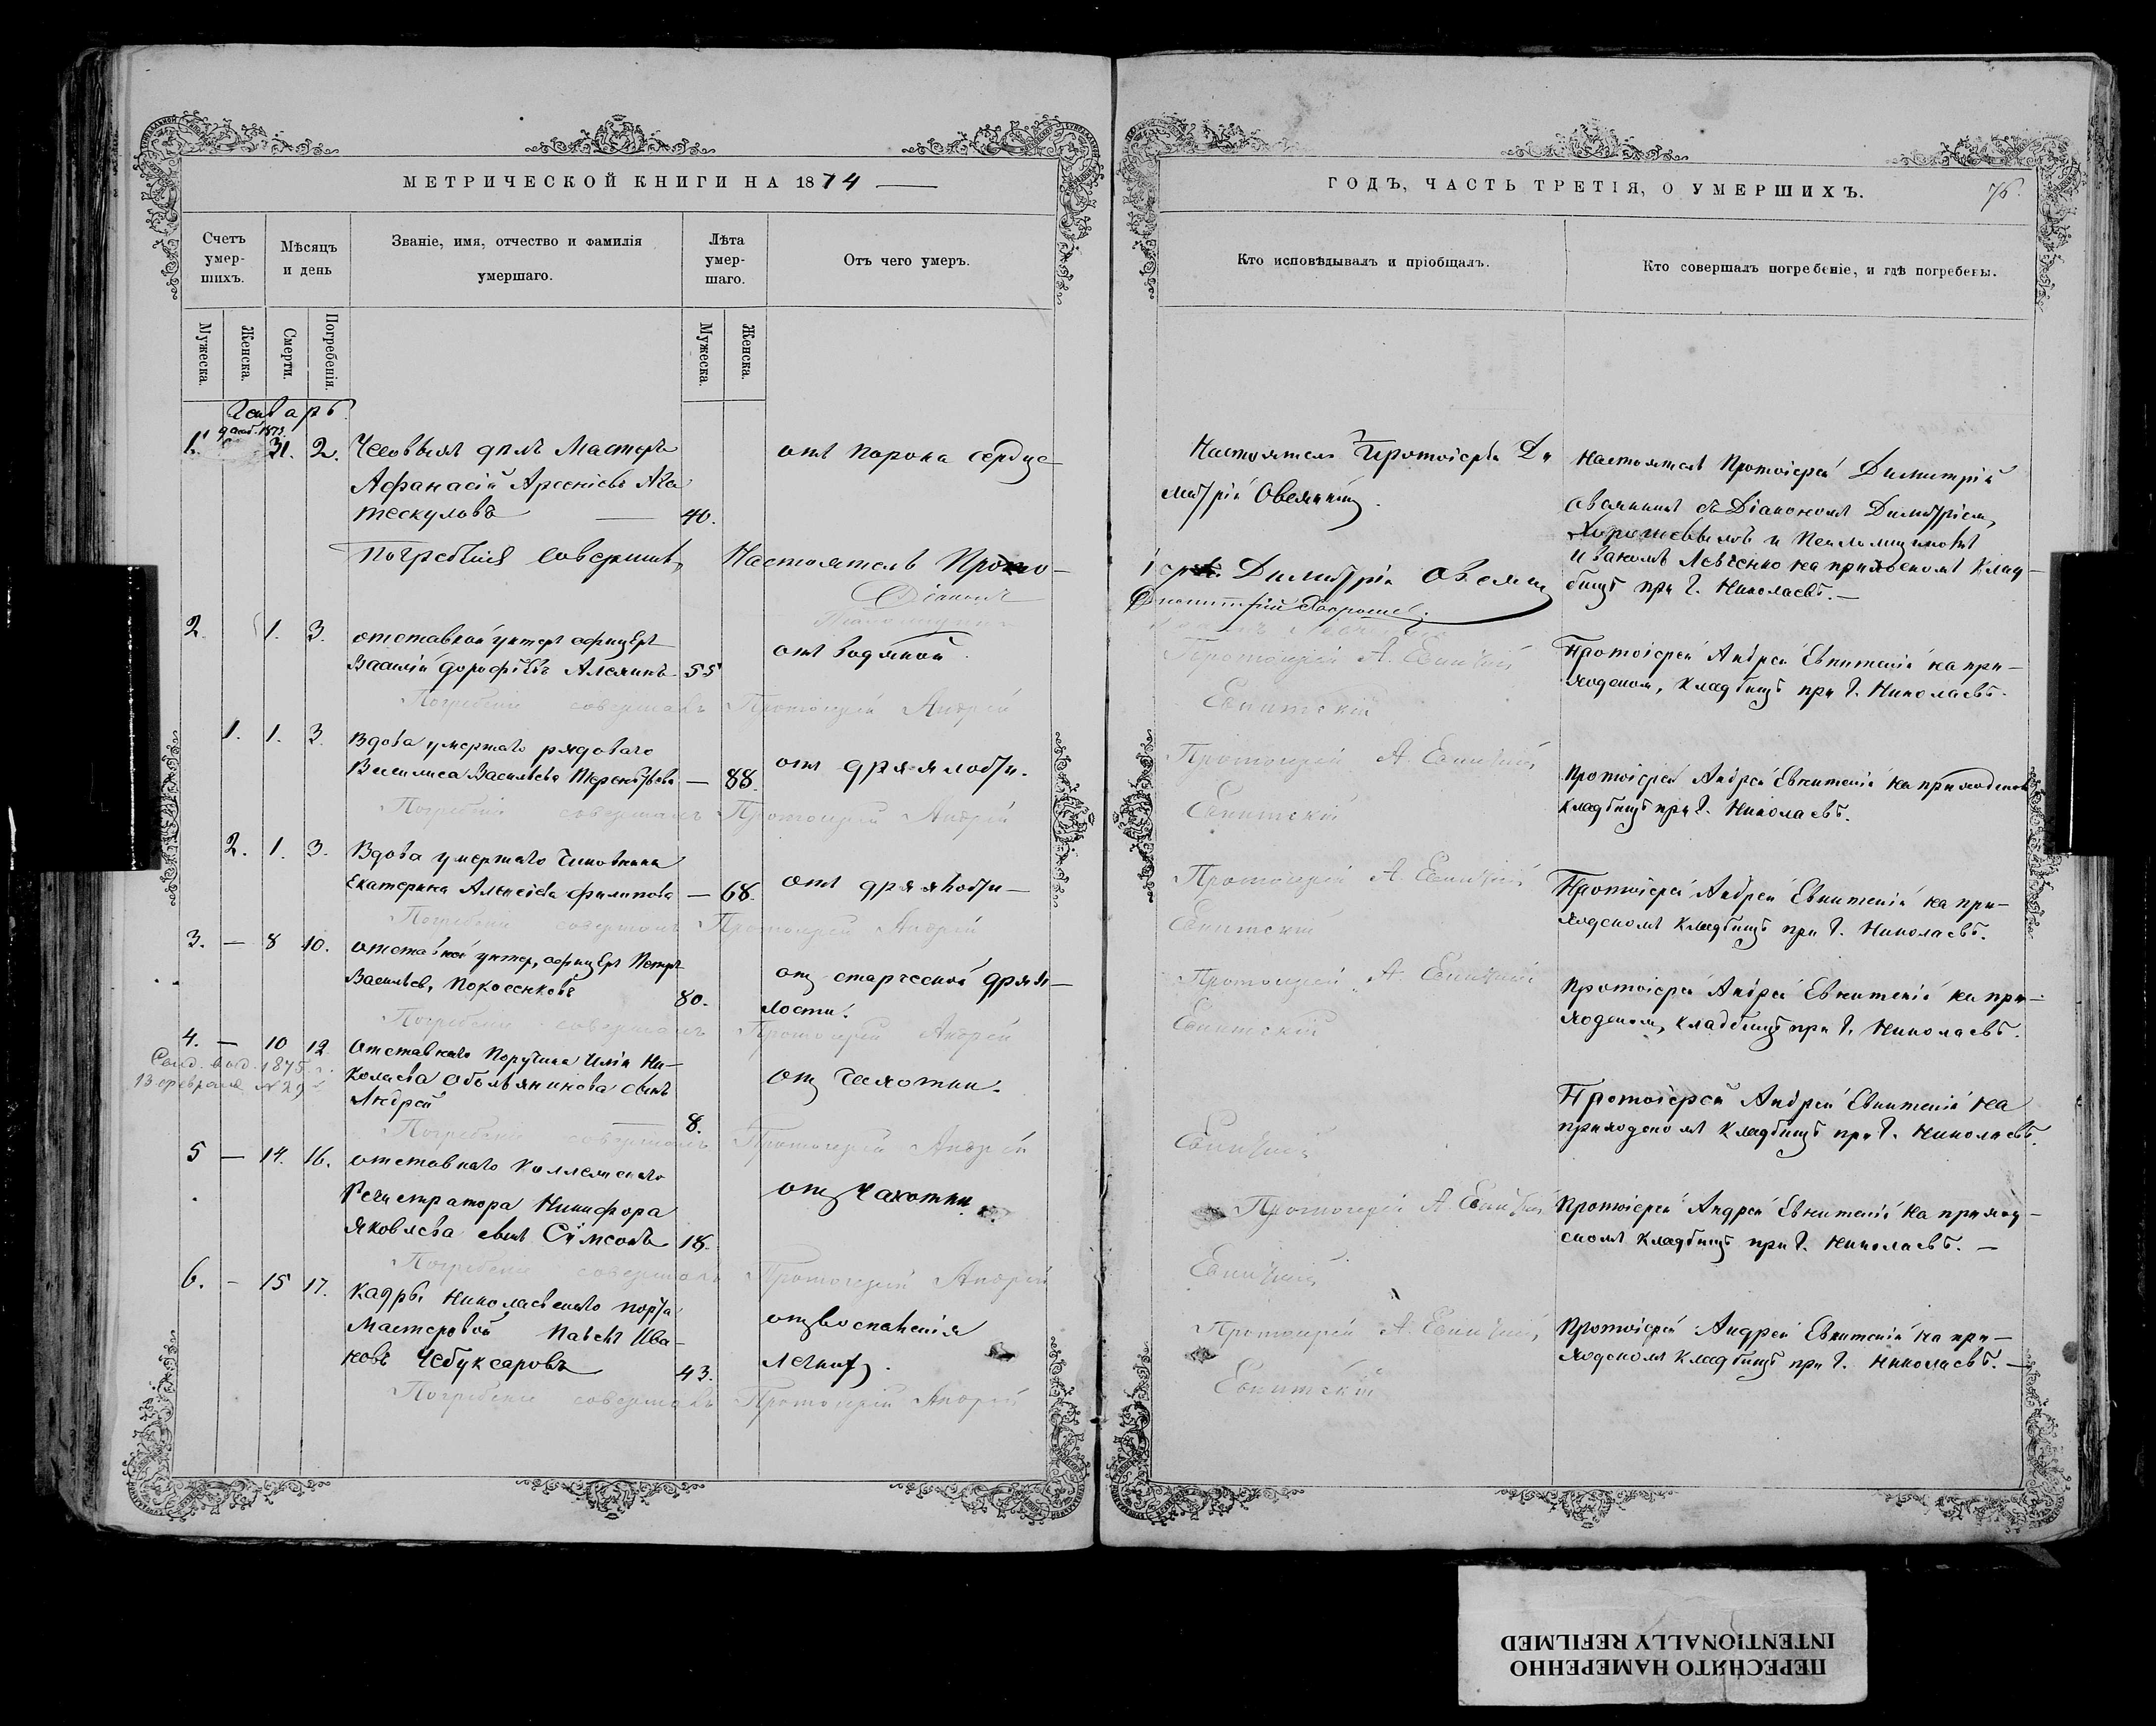 МЕТРИЧЕСКОЙ КНИГИ НА 1874
Счетъ умер- шихъ.
Мѣсяцъ и день
Званіе, имя, отчество и фамилія умершаго.
Лѣта умер- шаго.
Отъ чего умеръ.
Мужеска.
Женска.
Смерти.
Погребенія.
Мужеска.
Женска.
Январь
1. 31. 2. дѣлъ Мастеръ отъ порока сердца
Афанасій Арсеніевъ Ага
тескуловъ — 40.
Погребеніе совершилъ Настоятель Прото-
Діаконъ
2. 1. 3. отставной унтеръ офицеръ отъ водяной
Василій Дорофѣевъ Алехинъ 55
Погребеніе совершалъ Протоіерей Андрей
1. 1. 3. Вдова умершаго рядоваго отъ дряхлости.
Василиса Васильева Терентьева — 88.
Погребеніе совершалъ Протоіерей Андрей
2. 1. 3. Вдова умершаго Чиновника
Екатерина Алексіева Филипова — 68. отъ дряхлости —
Погребеніе совершалъ Протоіерей Андрей
3. — 8 10. отставной унтеръ, офицеръ Петръ отъ старческой дрях-
Васильевъ 80. лости.
Погребеніе совершалъ Протоіерей Андрей
4. — 10 12. Отставнаго Поручика Иліи Ни-
1875
13 февраля № 29 колаева Обольянинова сынъ отъ чахотки.
Андрей — 8.
Погребеніе совершалъ Протоіерей Андрей
5 — 14. 16. отставнаго Коллежскаго
Регистратора Никифора отъ чахотки
Яковлева сынъ Сѵмеонъ 18.
Погребеніе совершалъ Протоіерей Андрей
6. — 15 17. Кадры Николаевскаго порта
Мастеровой Павелъ Ива- отъ воспаленія
новъ Чебуксаровъ 43. легкихъ.
Погребеніе совершалъ Протоіерей Андрей
ГОДЪ, ЧАСТЬ ТРЕТІЯ, О УМЕРШИХЪ.
76.
Кто исповѣдывалъ и пріобщалъ.
Кто совершалъ погребеніе, и гдѣ погребены.
Настоятель Протоіерей Ди
митрій Овсянкинъ.
Настоятель Протоіерей Димитрій
Овсянкинъ съ Діакономъ Димитріемъ
и Псаломщикомъ
Иваномъ Левченко на приходскомъ клад-
бищѣ при г. Николаевѣ. —
іерей Димитрій Овсянк
Протоіерей А. Евнитскій
Евнитскій
Протоіерей Андрей Евнитскій на при-
ходскомъ, кладбищѣ при г. Николаевѣ.
Протоіерей А. Евнитскій
Евнитскій
Протоіерей Андрей Евнитскій на приходскомъ
кладбищѣ при г. Николаевѣ.
Протоіерей А. Евнитскій
Евнитскій
Протоіерей Андрей Евнитскій на при-
ходскомъ кладбищѣ при г. Николаевѣ.
Протоіерей А. Евнитскій
Евнитскій
Протоіерей Андрей Евнитскій на при-
ходскомъ, кладбищѣ при г. Николаевѣ.
Протоіерей Андрей Евнитскій на
приходскомъ кладбищѣ при г. Николаевѣ.
Евнитскій
Протоіерей А. Евнитскій
Евнитскій
Протоіерей Андрей Евнитскій на приход-
скомъ кладбищѣ при г. Николаевѣ. —
Протоіерей А. Евнитскій
Евнитскій
Протоіерей Андрей Евнитскій на при-
ходскомъ кладбищѣ при г. Николаевѣ. —
ПЕРЕСНЯТО НАМЕРЕННО
INTENTIONALLY REFILMED